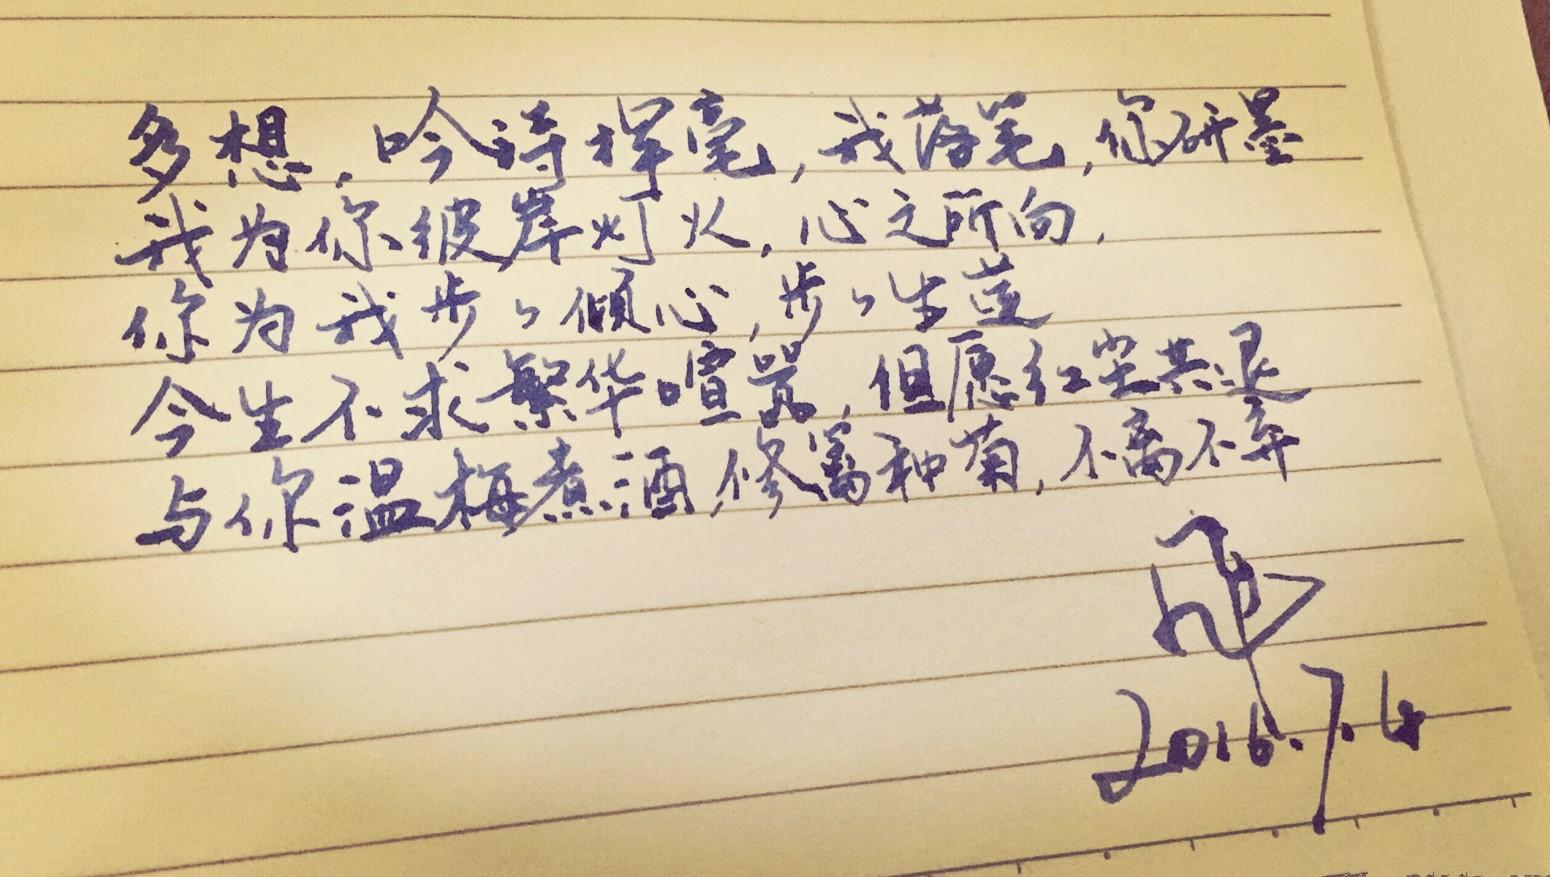 多想，吟诗挥毫，我落笔，你研墨
我为你彼岸灯火，心之所向，
你为我步々倾心，步々生莲
今生不求繁华喧嚣，但愿红尘共退
与你温梅煮酒，修篱种菊，不离不弃
2016.7.4